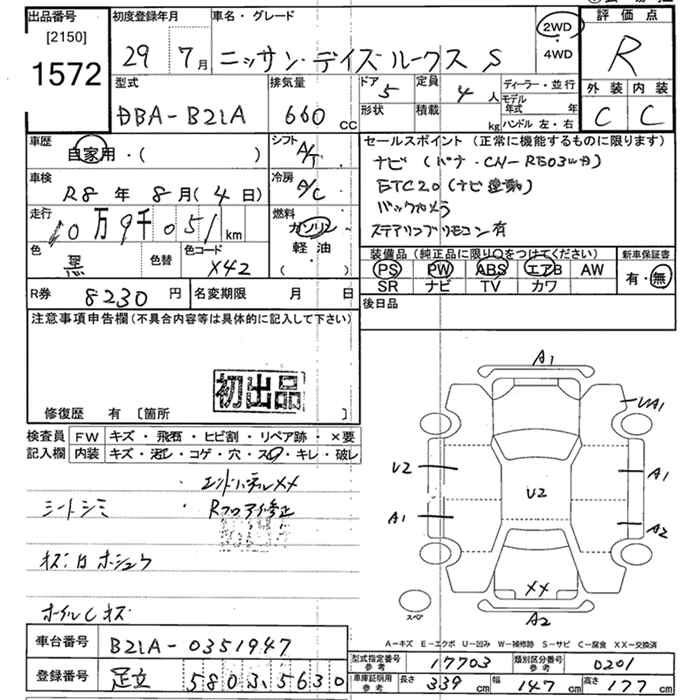 出品番号
[2150]
1572
初度登録年月
29 7月
車名・グレード
ニッサン デイズルークス S
2WD
4WD
評価点
R
外装 内装
C C
型式
DBA-B21A
排気量
660 cc
ドア
5
定員
4 人
形状
積載
kg
ディーラー・並行
モデル年式 年
ハンドル 左・右
車歴
自家用・( )
シフト
A/T
車検
R8年 8月(4日)
冷房
A/C
走行
10万9千051 km
燃料
ガソリン
軽油
( )
色
黒
色替
色コード
X42
R券
8230 円
名変期限 月 日
セールスポイント (正常に機能するものに限ります)
ナビ (パナ・CN-RE03WD)
ETC2.0 (ナビ連動)
バックカメラ
ステアリングリモコン有
装備品 (純正品に限り○をつけてください)
PS PW ABS エアB AW
SR ナビ TV カワ
新車保証書
有・無
後日品
注意事項申告欄 (不具合内容等は具体的に記入して下さい)
初出品
修復歴 有 [箇所 ]
検査員
記入欄
FW キズ・飛石・ヒビ割・リペア跡・×要
内装 キズ・汚レ・コゲ・穴・スレ・キレ・破レ
・エンドパネルXX
シートシミ
・Rフロア修正
ホイルCキズ
A1
UA1
U2
A1
U2
A1
A2
XX
A2
スペア
A-キズ E-エクボ U-凹み W-補修跡 S-サビ C-腐食 XX-交換済
車台番号
B21A-0351947
登録番号
足立 580 35630
型式指定番号
参考
17703
類別区分番号
参考
0201
車庫証明用
参考
長さ 339 cm
幅 147 cm
高さ 177 cm